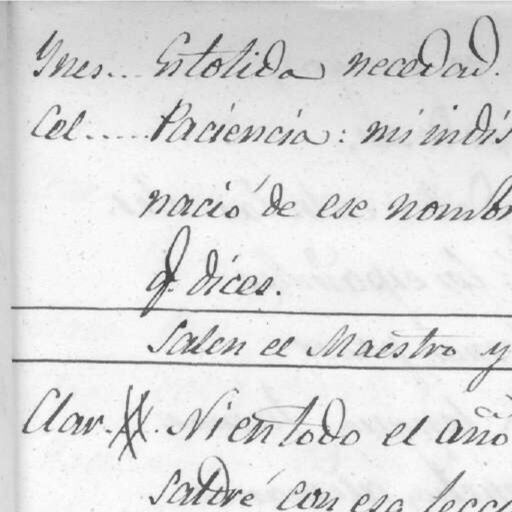 Ynes... Estolida necedad.
Cel..... Paciencia: mi indis
nació de ese nombr
q.e dices.
Salen el Maestro y
Clar. Ni en todo el año
saldré con esa lecci